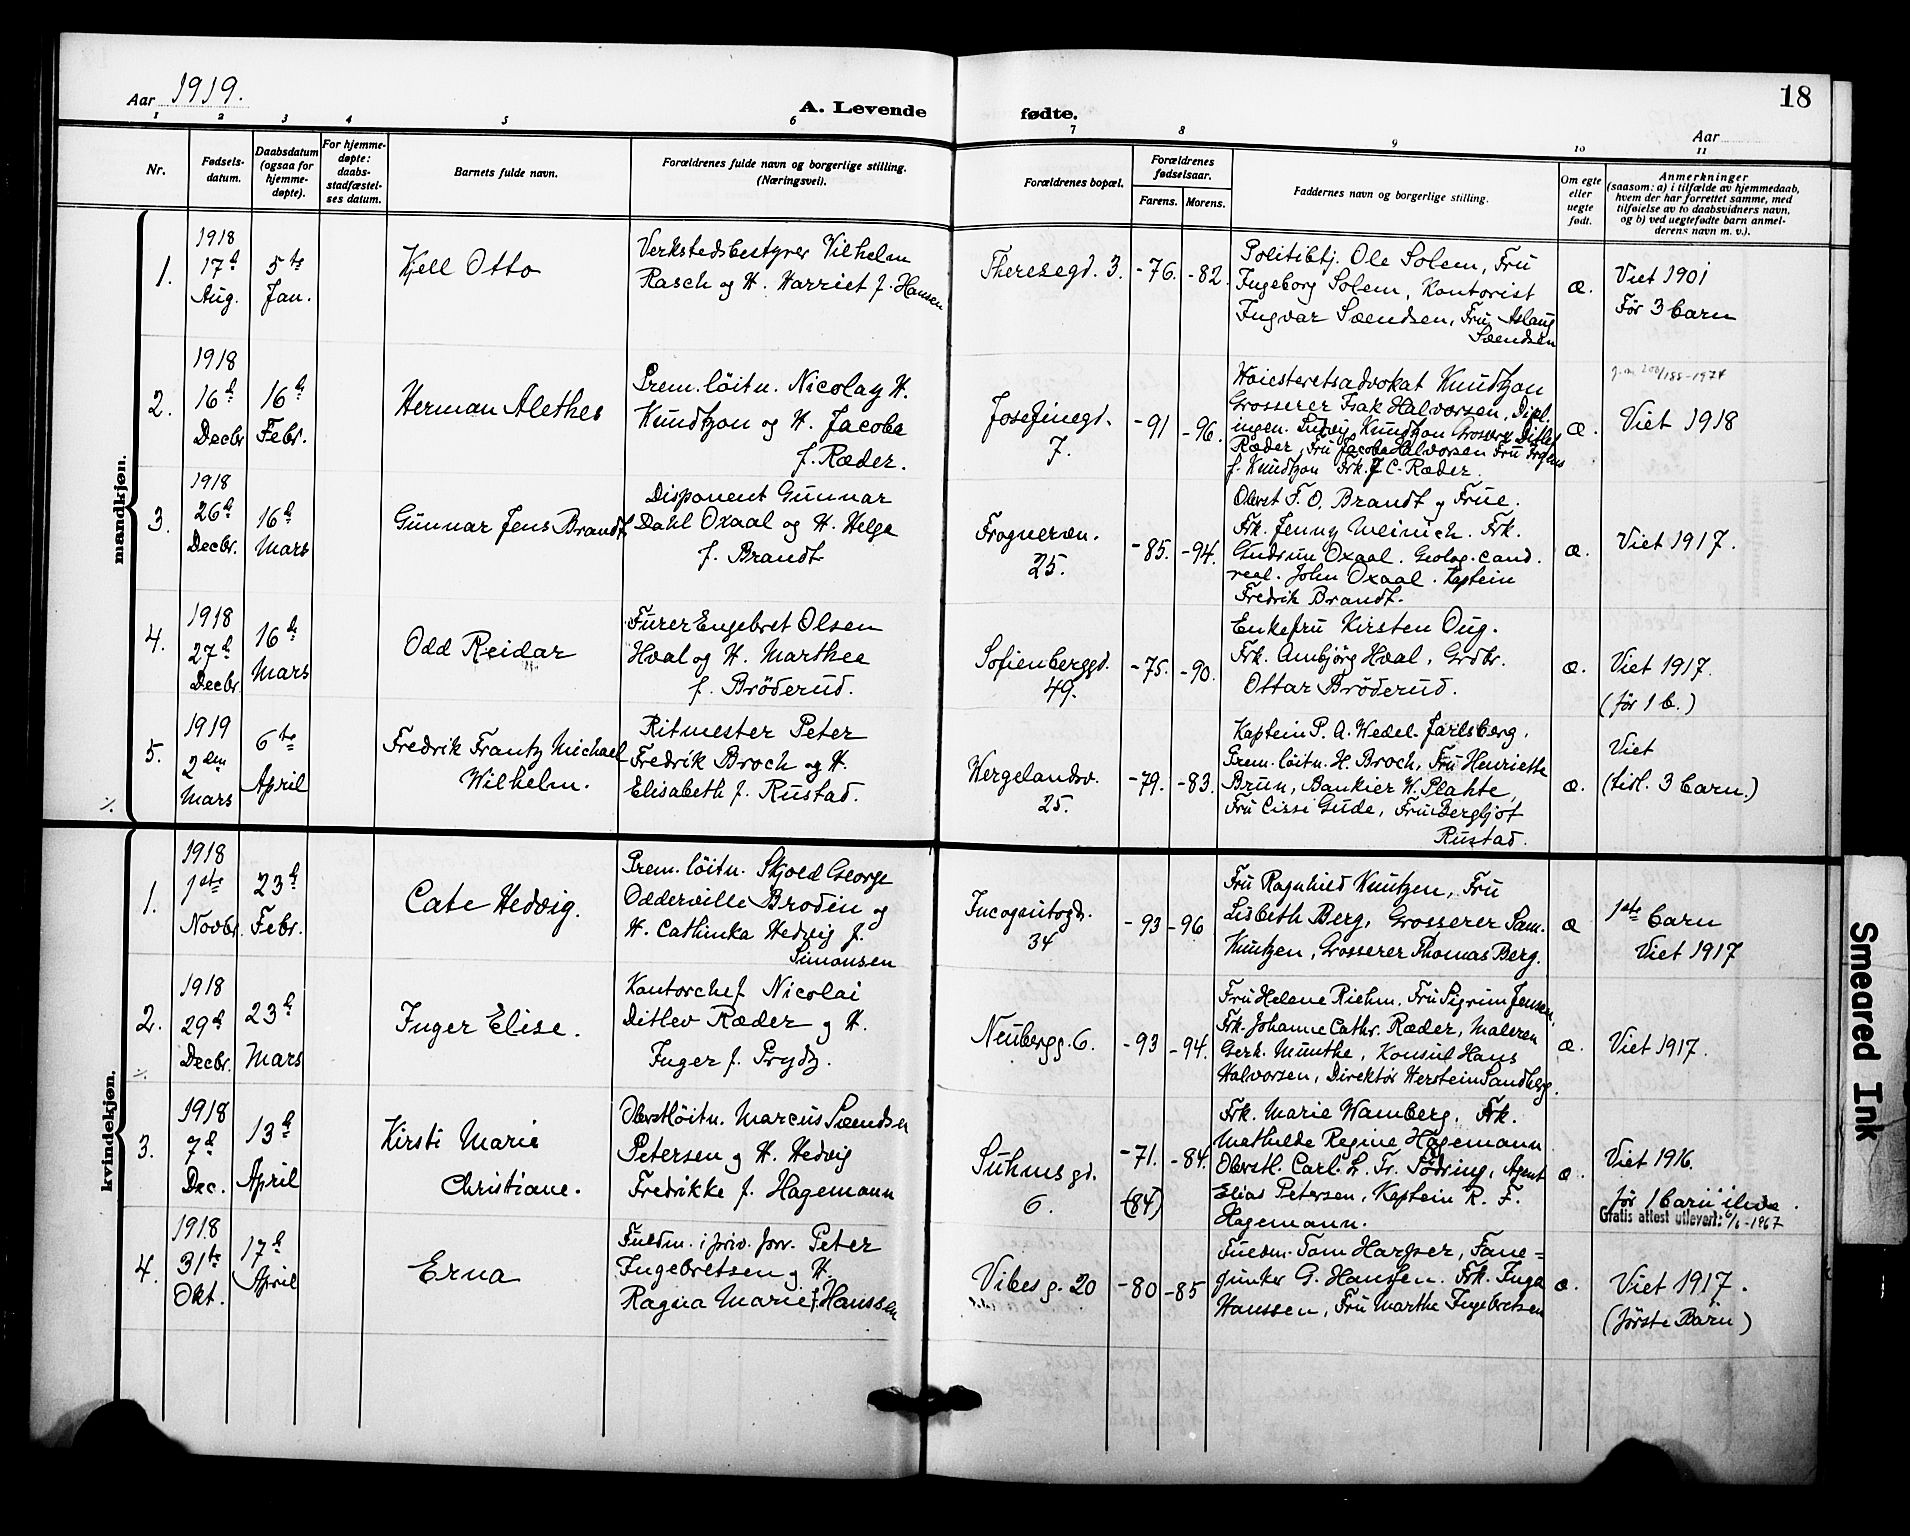 18
Aar 1919.
A. Levende fødte.
Aar
1 2 3 4 5 6 7 8 9 10 11
Nr.
Fødsels-
datum.
Daabsdatum
(ogsaa for
hjemme-
døpte).
For hjemme-
døpte:
daabs-
stadfæstel-
ses datum.
Barnets fulde navn.
Forældrenes fulde navn og borgerlige stilling.
(Næringsvei).
Forældrenes bopæl.
Forældrenes
fødselsaar.
Farens. Morens.
Faddernes navn og borgerlige stilling.
Om egte
eller
uegte
født.
Anmerkninger
(saasom: a) i tilfælde av hjemmedaab,
hvem der har forrettet samme, med
tilføielse av to daabsvidners navn,
og b) ved uegtefødte barn anmel-
derens navn m. v.).
mandkjøn.
1.
1918
17d
Aug.
5te
Jan.
Kjell Otto
Verkstedsbestyrer Vilhelm
Rasch og H. Harriet f. Hansen
Theresegd. 3.
-76. -82.
Politibtj. Ole Solem, Fru
Ingeborg Solem, Kontorist
Ingvar Svendsen, Fru Aslaug
Svendsen
æ.
Viet 1901
Før 3 barn
2.
1918
16d
Decbr
16d
Febr.
Herman Alethes
Prem. löitn. Nicolay H.
Knudtzon og H. Jacobe
f. Ræder.
Josefinegd.
7.
-91 -96.
Höiesteretsadvokat Knudtzon
Grosserer Isak Halvorsen, Dipl.
ingen. Ludvig Knudtzon Grosserer Ditlef
Ræder, Fru Jacobe Halvorsen Fru
f. Knudtzon Frk. J C. Ræder.
æ.
Viet 1918
3.
1918
26d
Decbr.
16d
Mars
Gunnar Jens Brandt
Disponent Gunnar
Dahl Oxaal og H. Helga
f. Brandt
Frognervn.
25.
-85. -94.
Oberst F. O. Brandt og Frue.
Frk. Jenny Meinich. Frk.
Gudrun Oxaal. Geolog. cand.
real. John Oxaal. Kaptein
Fredrik Brandt.
æ.
Viet 1917.
4.
1918
27d
Decbr.
16d
Mars
Odd Reidar
Furer Engebret Olsen
Hval og H. Marthea
f. Bröderud.
Sofienberggd.
49.
-75. -90.
Enkefru Kirsten Oug.
Frk. Ambjörg Hval, Grdbr.
Ottar Bröderud.
æ.
Viet 1917.
(før 1 b.)
5.
1919
2den
Mars
6te
April
Fredrik Frantz Michael
Wilhelm.
Ritmester Peter
Fredrik Broch og H.
Elisabeth f. Rustad.
Wergelandsv.
25.
-79. -83.
Kaptein P. A. Wedel-Jarlsberg,
Prem. löitn. H. Broch, Fru Henriette
Brun, Bankier H. Plahte,
Fru Cissi Gude, Fru Bergljot
Rustad.
æ.
Viet
(tidl. 3 barn.)
kvindekjøn.
1.
1918
1ste
Novbr.
23d
Febr.
Cate Hedvig.
Prem. löitn. Skjold George
Odderville Brodin og
H. Cathinka Hedvig f.
Simonsen
Incognitogd.
34
-93 -96
Fru Ragnhild Knutzen, Fru
Lisbeth Berg, Grosserer Sam.
Knutzen, Grosserer Thomas Berg.
æ
1ste barn
Viet 1917
2.
1918
29d
Decbr.
23d
Mars
Inger Elise.
Kontorchef Nicolai
Ditlev Ræder og H.
Inger f. Prydz.
Neubergg. 6.
-93 -94.
Fru Helene Riehm, Fru Sigrun Jensen,
Frk. Johanne Cathr. Ræder, Maleren
Gerh. Munthe, Konsul Hans
Halvorsen, Direktör Herstein Sandberg.
æ.
Viet 1917.
3.
1918
7d
Dec.
13d
April
Kirsti Marie
Christiane.
Oberstlöitn. Marcus Svendsen
Petersen og H. Hedvig
Fredrikke f. Hagemann
Suhmsgd.
6.
-71. -84.
(84)
Frk. Marie Wamberg, Frk.
Mathilde Regine Hagemann
Oberstl. Carl. L. Fr. Södring, Agent
Elias Petersen, Kaptein R. F.
Hagemann.
æ.
Viet 1916.
før 1 barn ilive.
Gratis attest utlevert: 6/6-1967
4.
1918
31te
Okt.
17d
April
Erna
Fuldm. i priv. forr. Peter
Ingebretsen og H.
Ragna Marie f. Hanssen
Vibesg. 20
-80 -85
Fuldm. Tom Harjser, Fane-
junker G. Hanssen. Frk. Inga
Hanssen, Fru Marthe Ingebretsen
æ.
Viet 1917.
(første Barn)
Smeared Ink